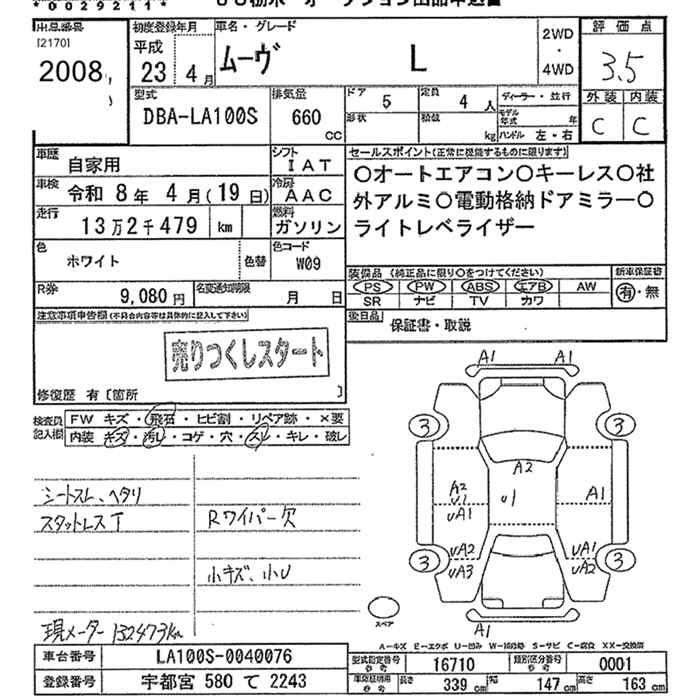 *00292111*
出品番号
[2170]
2008
初度登録年月
平成
23 4月
車名・グレード
ムーヴ L
2WD
・
4WD
評価点
3.5
外装 内装
C C
型式
DBA-LA100S
排気量
660
CC
ドア 5
形状
定員 4人
積載 kg
ディーラー・並行
モデル年式 年
ハンドル 左・右
車歴
自家用
シフト
IAT
車検
令和 8年 4月(19日)
冷房
AAC
走行
13万2千479 km
燃料
ガソリン
色
ホワイト
色替
色コード
W09
R券
9,080円
名変通知期限
月 日
セールスポイント(正常に機能するものに限ります)
○オートエアコン○キーレス○社
外アルミ○電動格納ドアミラー○
ライトレベライザー
装備品(純正品に限り○をつけてください)
PS PW ABS エアB AW
SR ナビ TV カワ
新車保証書
有・無
後日品
保証書・取説
注意事項申告欄(不具合内容等は具体的に記入して下さい)
売りつくしスタート
修復歴 有〔箇所 〕
検査員記入欄
FW キズ・飛石・ヒビ割・リペア跡・×要
内装 キズ・汚レ・コゲ・穴・スレ・キレ・破レ
シートスレ、ヘタリ
スタットレスT
Rワイパー欠
小キズ、小U
現メーター 132473km
A1 A1
3 3
A2
A2
U1
UA1
U1
A1
UA2
UA3
UA1
UA2
3 3
A1
スペア
A-キズ E-エクボ U-凹み W-補修跡 S-サビ C-腐食 XX-交換済
車台番号 LA100S-0040076
登録番号 宇都宮 580 て 2243
型式指定番号 参考 16710
類別区分番号 参考 0001
車庫証明用 参考 長さ 339cm 幅 147cm 高さ 163cm